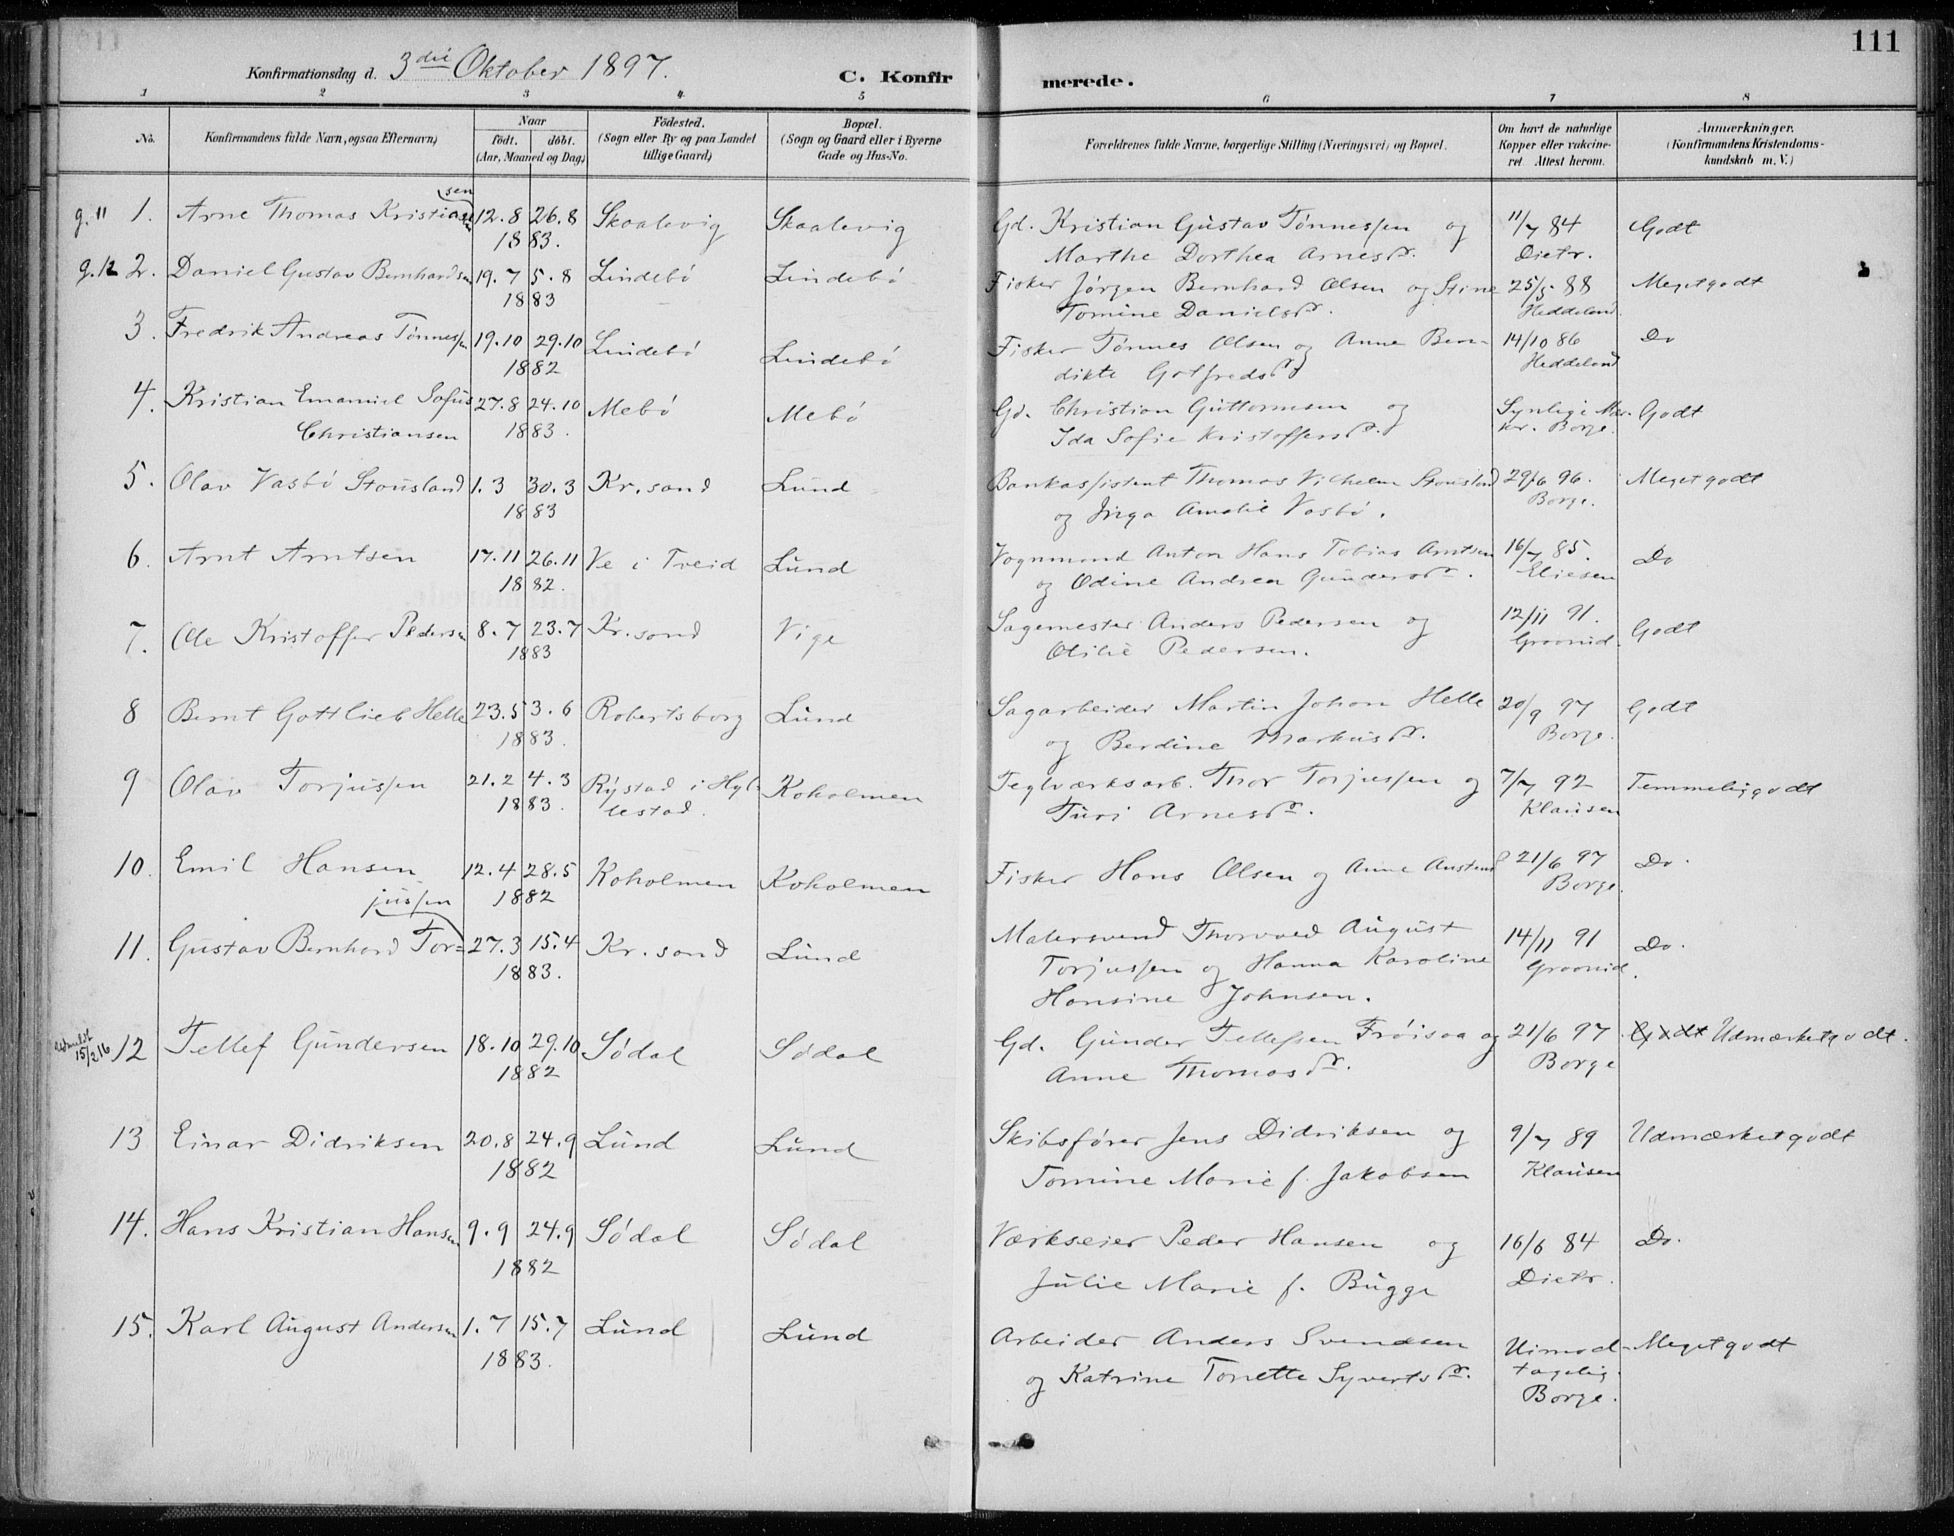 111
Konfirmationsdag d. 3die Oktober 1897.
C. Konfirmerede.
1 2 3 4 5 6 7 8
No.
Konfirmandens fulde Navn, ogsaa Efternavn)
Naar
födt. döbt.
(Aar, Maaned og Dag)
Födested.
(Sogn eller By og paa Landet
tillige Gaard)
Bopæl.
(Sogn og Gaard eller i Byerne
Gade og Hus-No.
Forældrenes fulde Navne, borgerlige Stilling (Næringsvei) og Bopæl.
Om havt de naturlige
Kopper eller vakcine-
ret. Attest herom.
Anmærkninger.
(Konfirmandens Kristendoms-
kundskab m. V.)
g. 11 1. Arne Thomas Kristiansen 12.8 26.8 Skaalevig Skaalevig Gd. Kristian Gustav Tønnessen og 11/7 84 Godt
1883. Marthe Dorthea Arnesdr. Dietr.
g. 12 2. Daniel Gustav Bernhardsen 19.7 5.8 Lindebö Lindebö Fisker Jörgen Bernhard Olsen og Stine 25/5 88 Megetgodt
1883 Tomine Danielsdr. Heddeland.
3. Fredrik Andreas Tönnessen 19.10 29.10 Lindebö Lindebö Fisker Tönnes Olsen og Anne Ben- 14/10 86 Do
1882 dikte Gotfredsdr. Heddeland
4. Kristian Emanuel Sofus 27.8 24.10 Mebö Mebö Gd. Christian Guttormsen og Synlige Mær- Godt
Christiansen 1883. Ida Sofie Kristoffersdr. ker. Borge.
5. Olav Vasbö Stousland 1.3 30.3 Kr.sand Lund Bankassistent Thomas Vilhelm Stousland 29/6 96. Megetgodt
1883 og Inga Amalie Vasbö. Borge.
6. Arnt Arntsen 17.11 26.11 Ve i Tveid Lund Vognmand Anton Hans Tobias Arntsen 16/7 85. Do
1882. og Odine Andrea Gundersdr. Eliesen
7. Ole Kristoffer Pedersen 8.7 23.7 Kr.sand Vige Sagemester Anders Pedersen og 12/11 91. Godt
1883 Otilie Pedersen.
8 Bernt Gottlieb Helle 23.5 3.6 Robertsborg Lund Sagarbeider Martin Johan Helle 20/9 97 Godt
1883. og Berdine Markusdr. Borge.
9 Olav Torjussen 21.2 4.3 Rystad i Hyl- Koholmen Teglværksarb. Thor Torjussen og 7/7 92 Temmeliggodt
1883. lestad. Turi Arnesdr. Klausen
10. Emil Hansen 12.4 28.5 Koholmen Koholmen Fisker Hans Olsen og Anne Austensd 21/6 97 Do.
1882 Borge.
11. Gustav Bernhard Tor= 27.3 15.4 Kr.sand Lund Malersvend Thorvald August 14/11 91 Do.
jussen 1883. Torjussen og Hanna Karoline
Hansine Johnsen.
15/2 16 12 Tellef Gundersen 18.10 29.10 Södal Södal Gd. Gunder Tellefsen Fröisaa og 21/6 97 Godt Udmærketgodt.
1882 Anne Thomasdr. Borge
13 Einar Didriksen 20.8 24.9 Lund Lund Skibsförer Jens Didriksen og 9/7 89 Udmærketgodt
1882 Tomine Marie f. Jakobsen Klausen
14. Hans Kristian Hansen 9.9 24.9 Södal Södal Værkseier Peder Hansen og 16/6 84 Do.
1882 Julie Marie f. Bugge Dietr.
15. Karl August Andersen 1.7 15.7 Lund Lund Arbeider Anders Svendsen Uimod- Megetgodt
1883. og Katrine Tonette Syvertsdr. tagelig.
Borge.